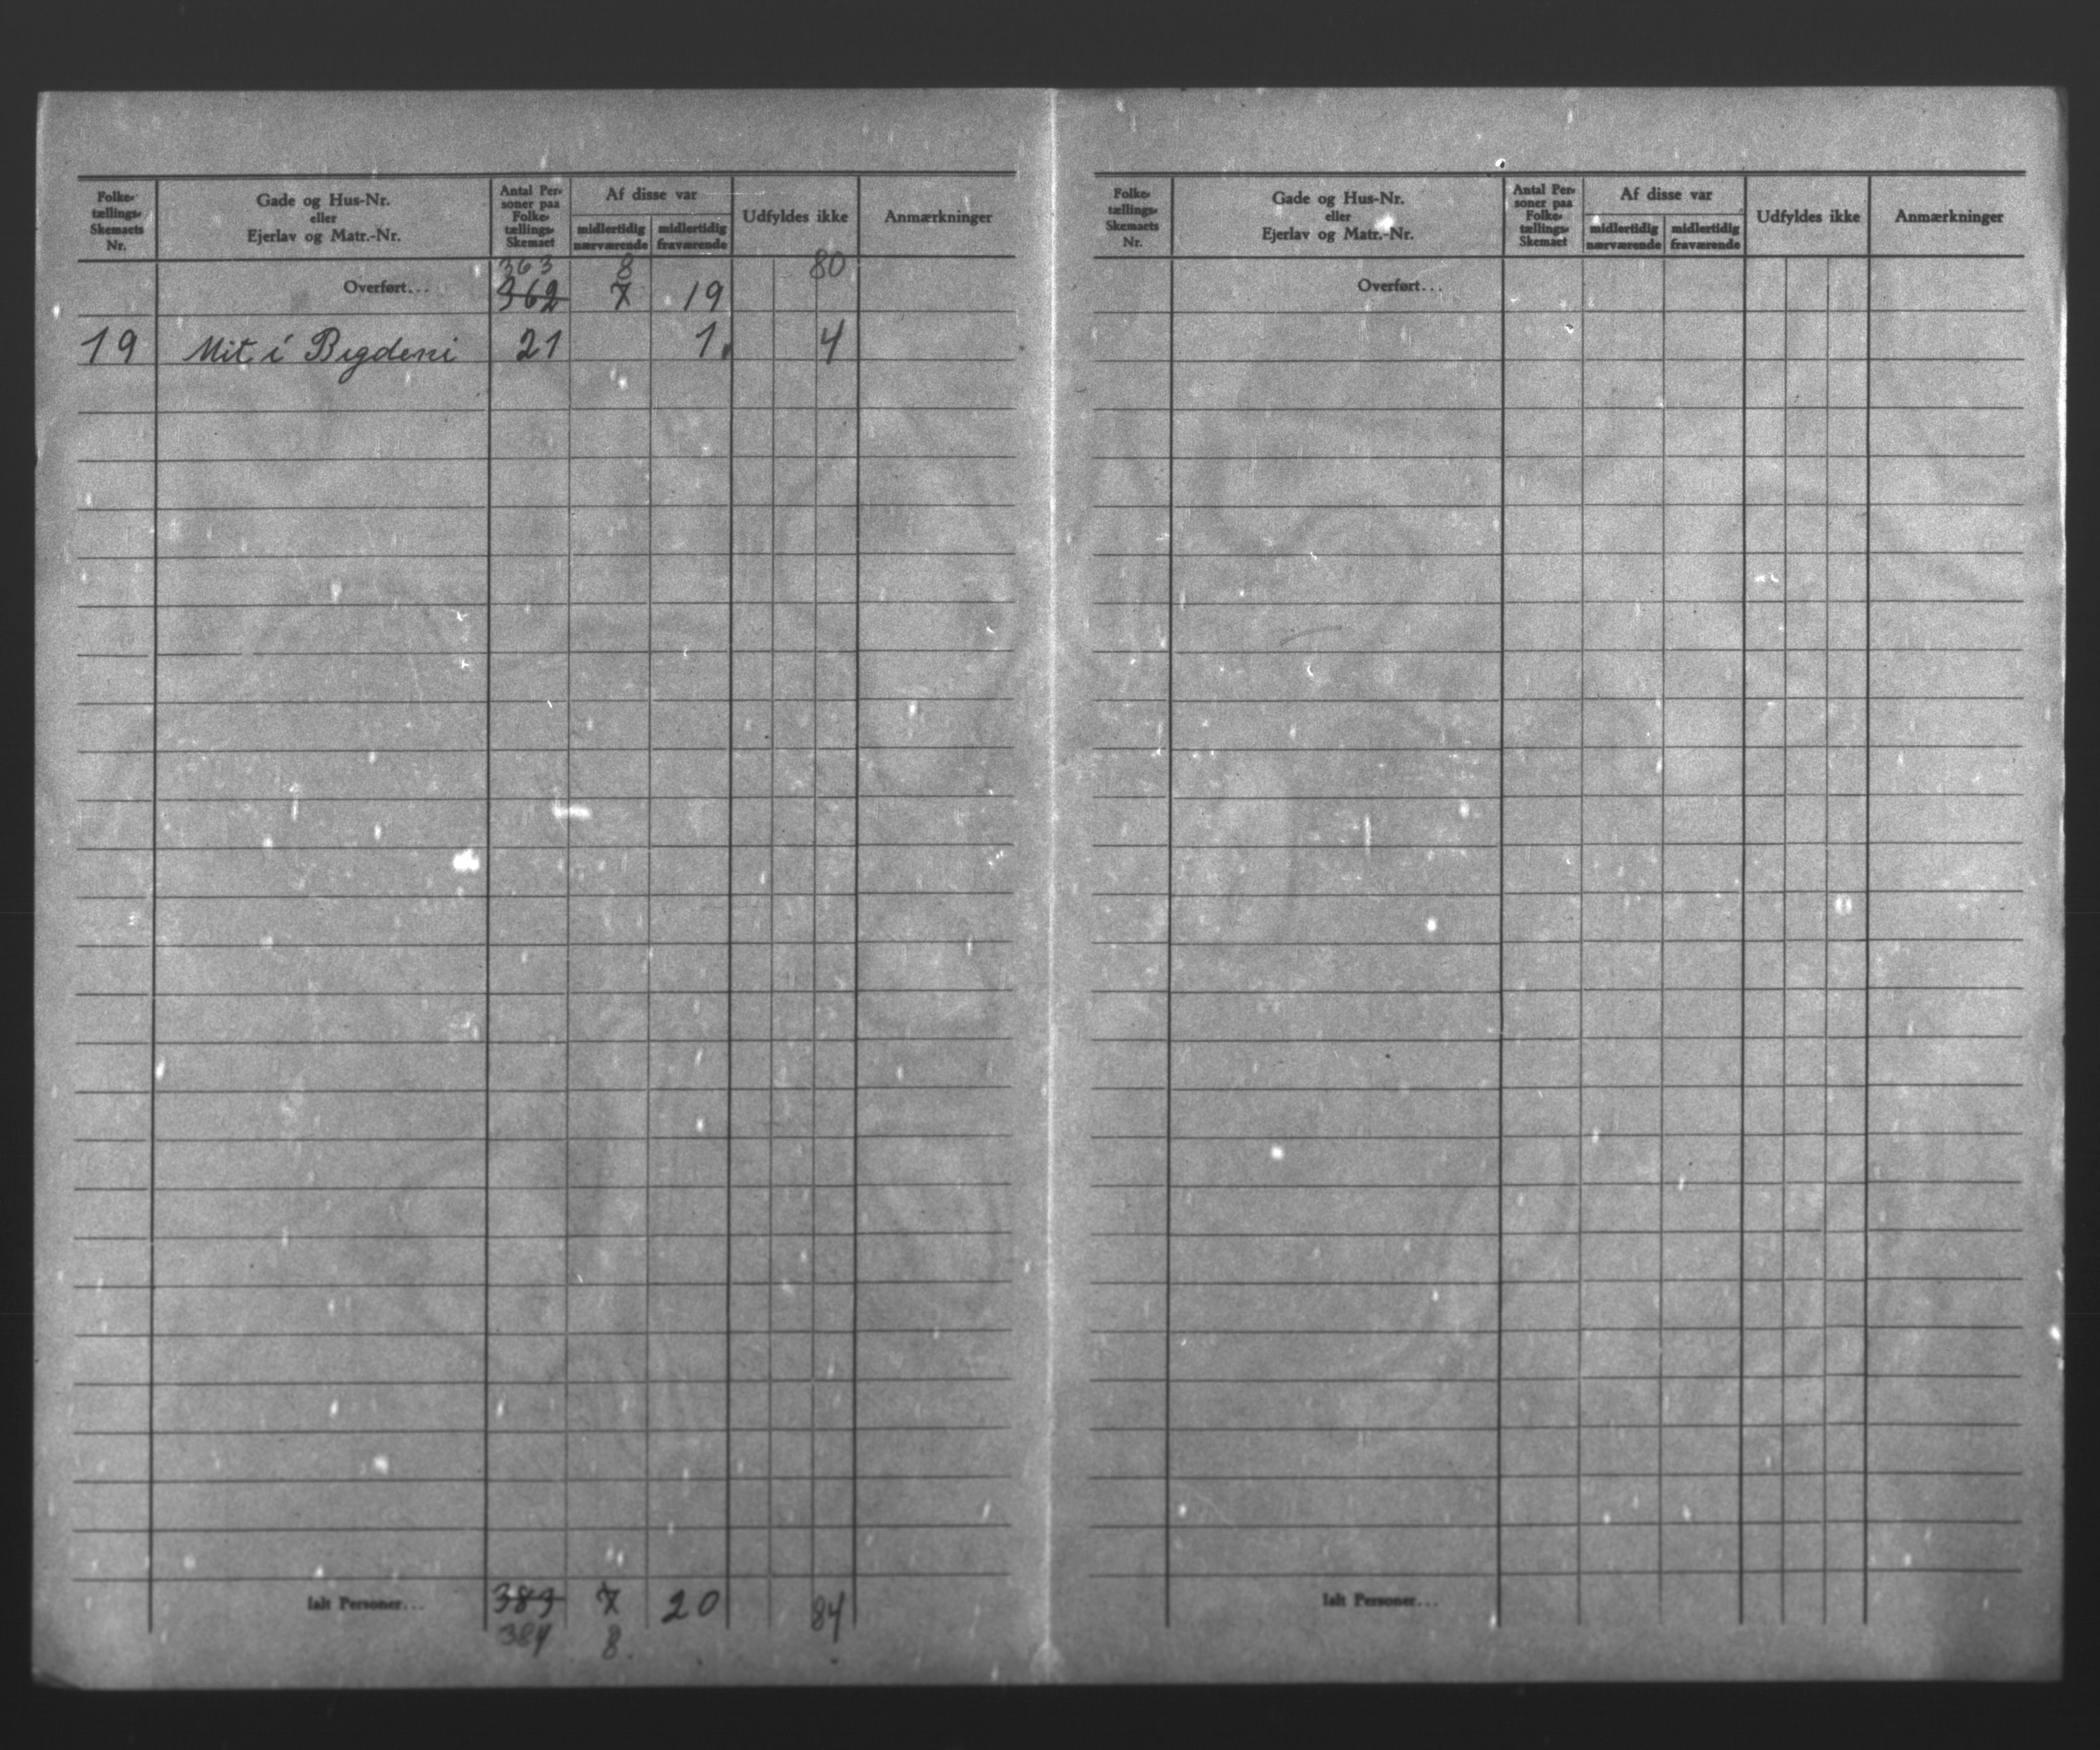 Folke-
tællings-
Skemaets
Nr.
Gade og Hus-Nr.
eller
Ejerlav og Matr.-Nr.
Antal Per-
soner paa
Folke-
tællings-
Skemaet
Af disse var
midlertidig
nærværende
midlertidig
fraværende
Udfyldes ikke
Anmærkninger
363 8 80
Overført... 362 7 19
19 Mit i Bygdeni 21 1 4
Ialt Personer... 383 7 20 84
384 8
Folke-
tællings-
Skemaets
Nr.
Gade og Hus-Nr.
eller
Ejerlav og Matr.-Nr.
Antal Per-
soner paa
Folke-
tællings-
Skemaet
Af disse var
midlertidig
nærværende
midlertidig
fraværende
Udfyldes ikke
Anmærkninger
Overført...
Ialt Personer...